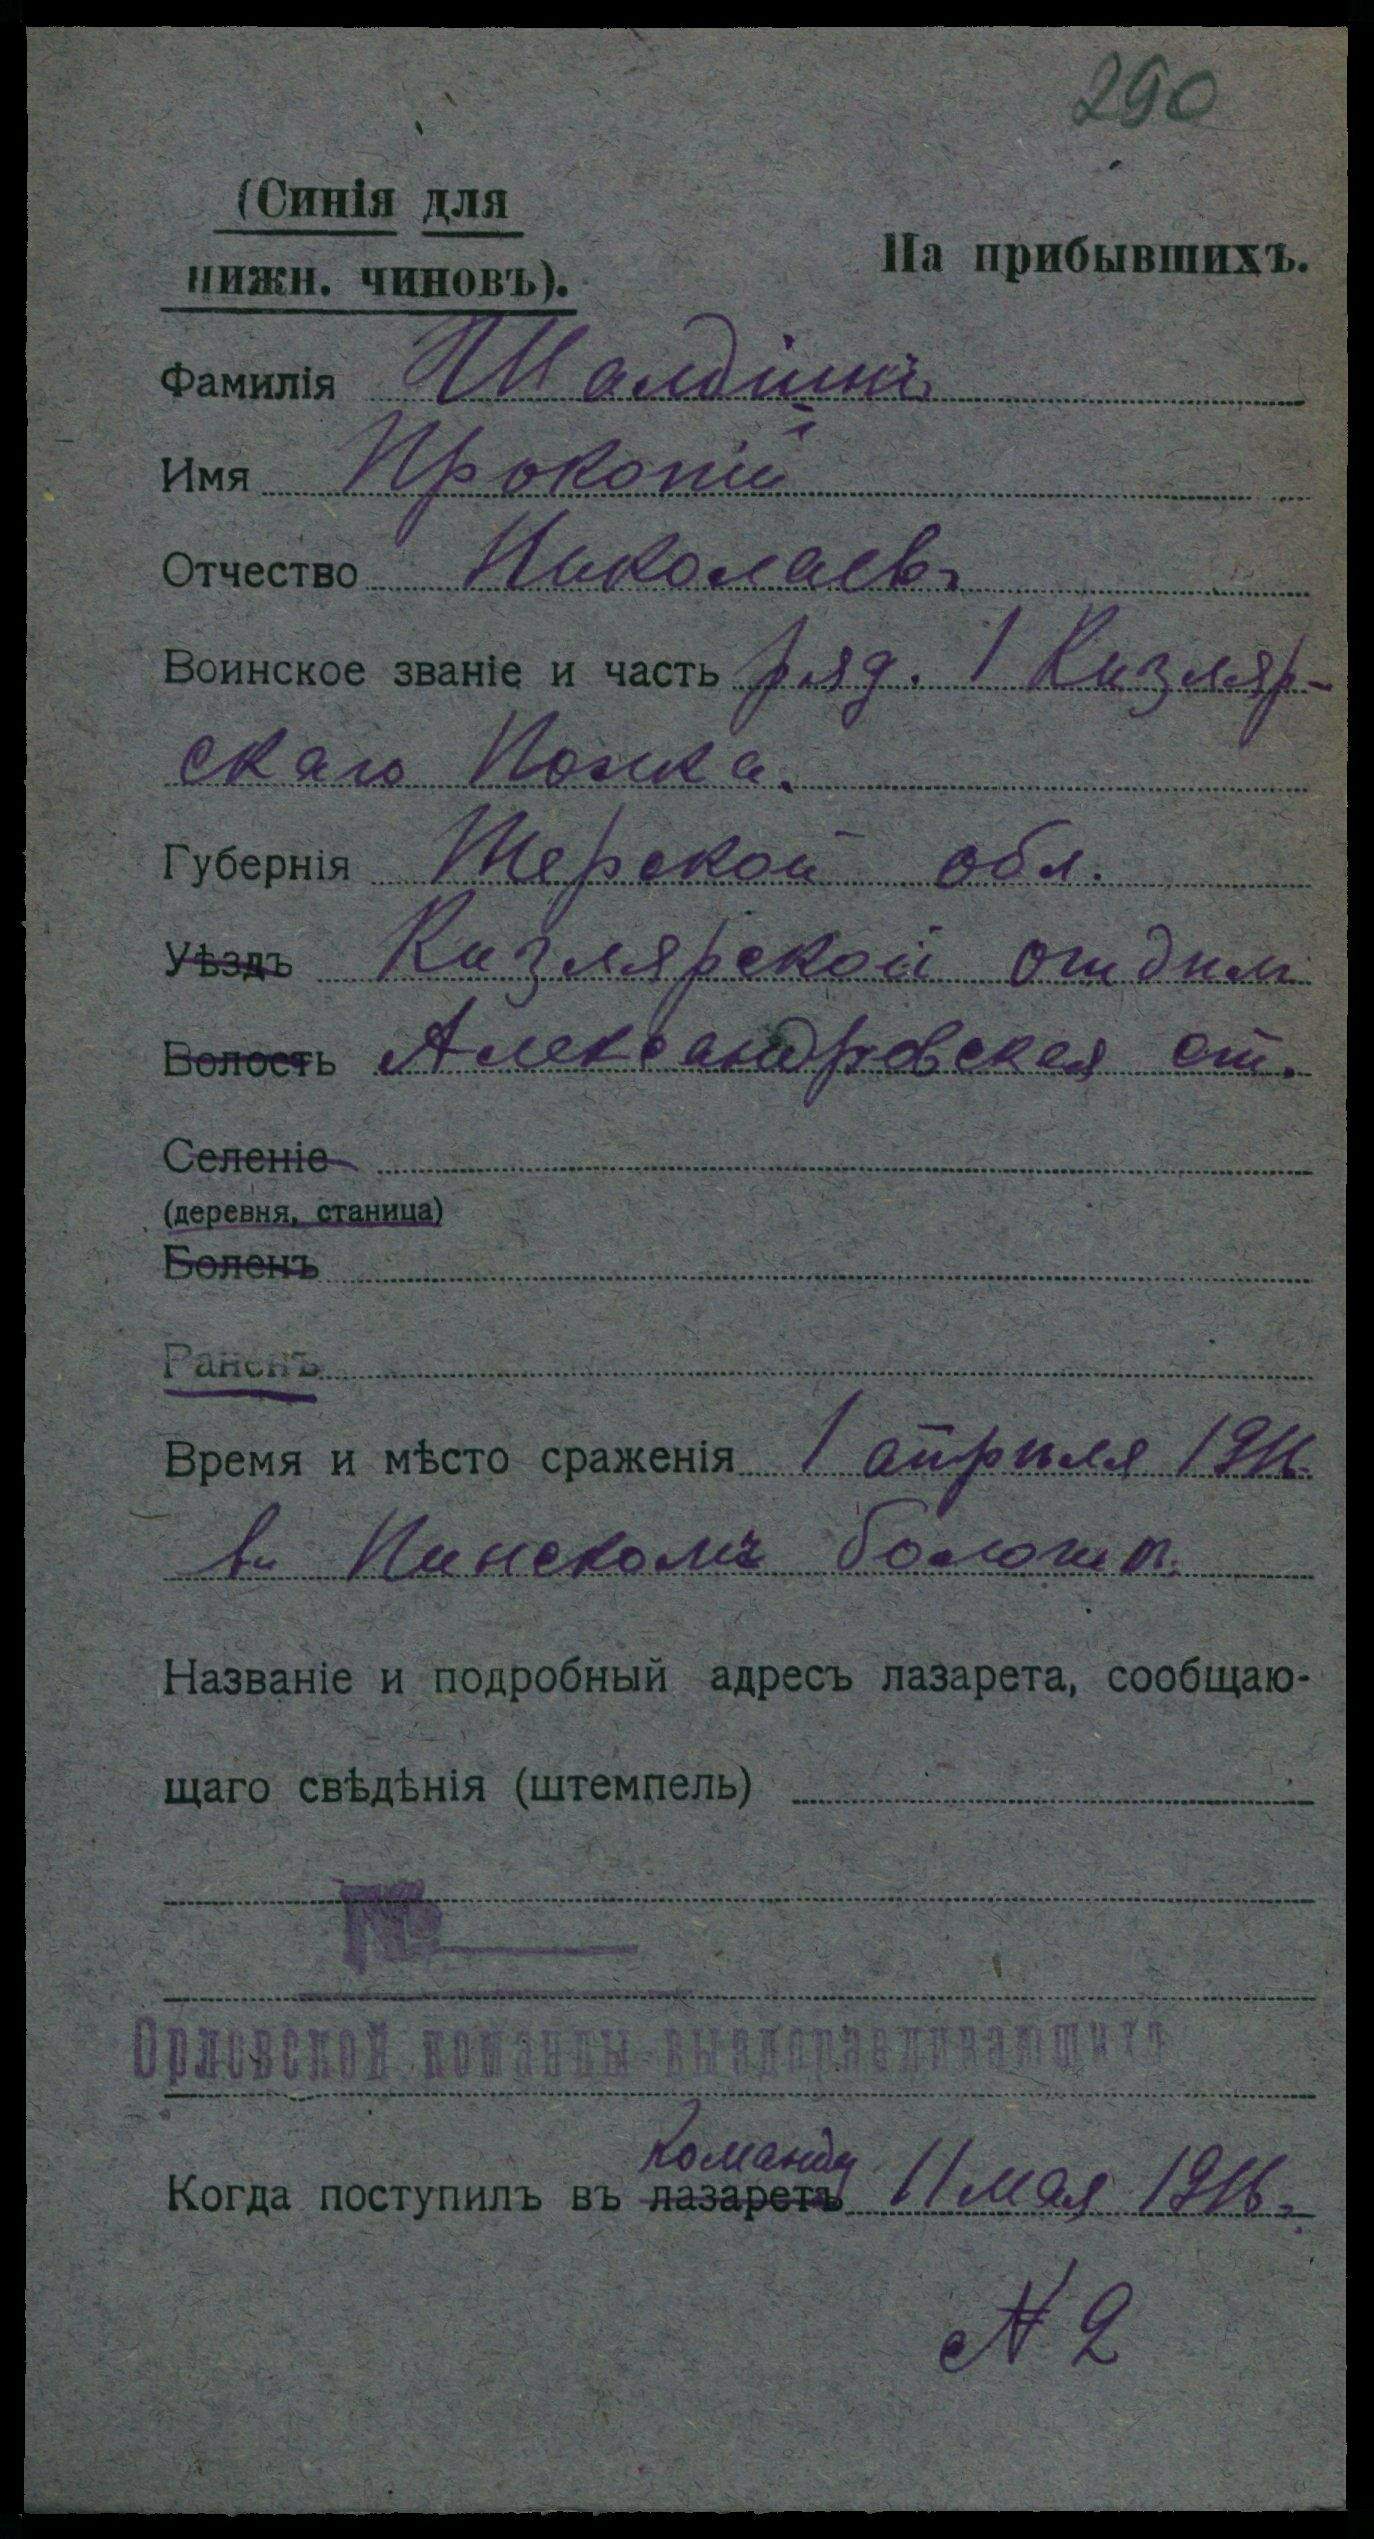 290
(Синія для
нижн. чиновъ).
На прибывшихъ.
Фамилія Шалдинъ
Имя Прокопій
Отчество Николаевъ
Воинское званіе и часть ряд. 1 Кизляр-
скаго Полка.
Губернія Терской обл.
Уѣздъ Кизлярской отдѣлъ
Волость Александровская ст.
Селеніе
(деревня, станица)
Боленъ
Раненъ
Время и мѣсто сраженія 1 апрѣля 1916
въ Пинскомъ болотѣ.
Названіе и подробный адресъ лазарета, сообщаю-
щаго свѣдѣнія (штемпель)
№
Орловской команды выздоравливающихъ
команду
Когда поступилъ въ лазаретъ 11 мая 1916.
№ 2